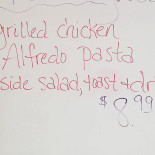 grilled chicken
Alfredo pasta
side salad, toast + dr
$8.99